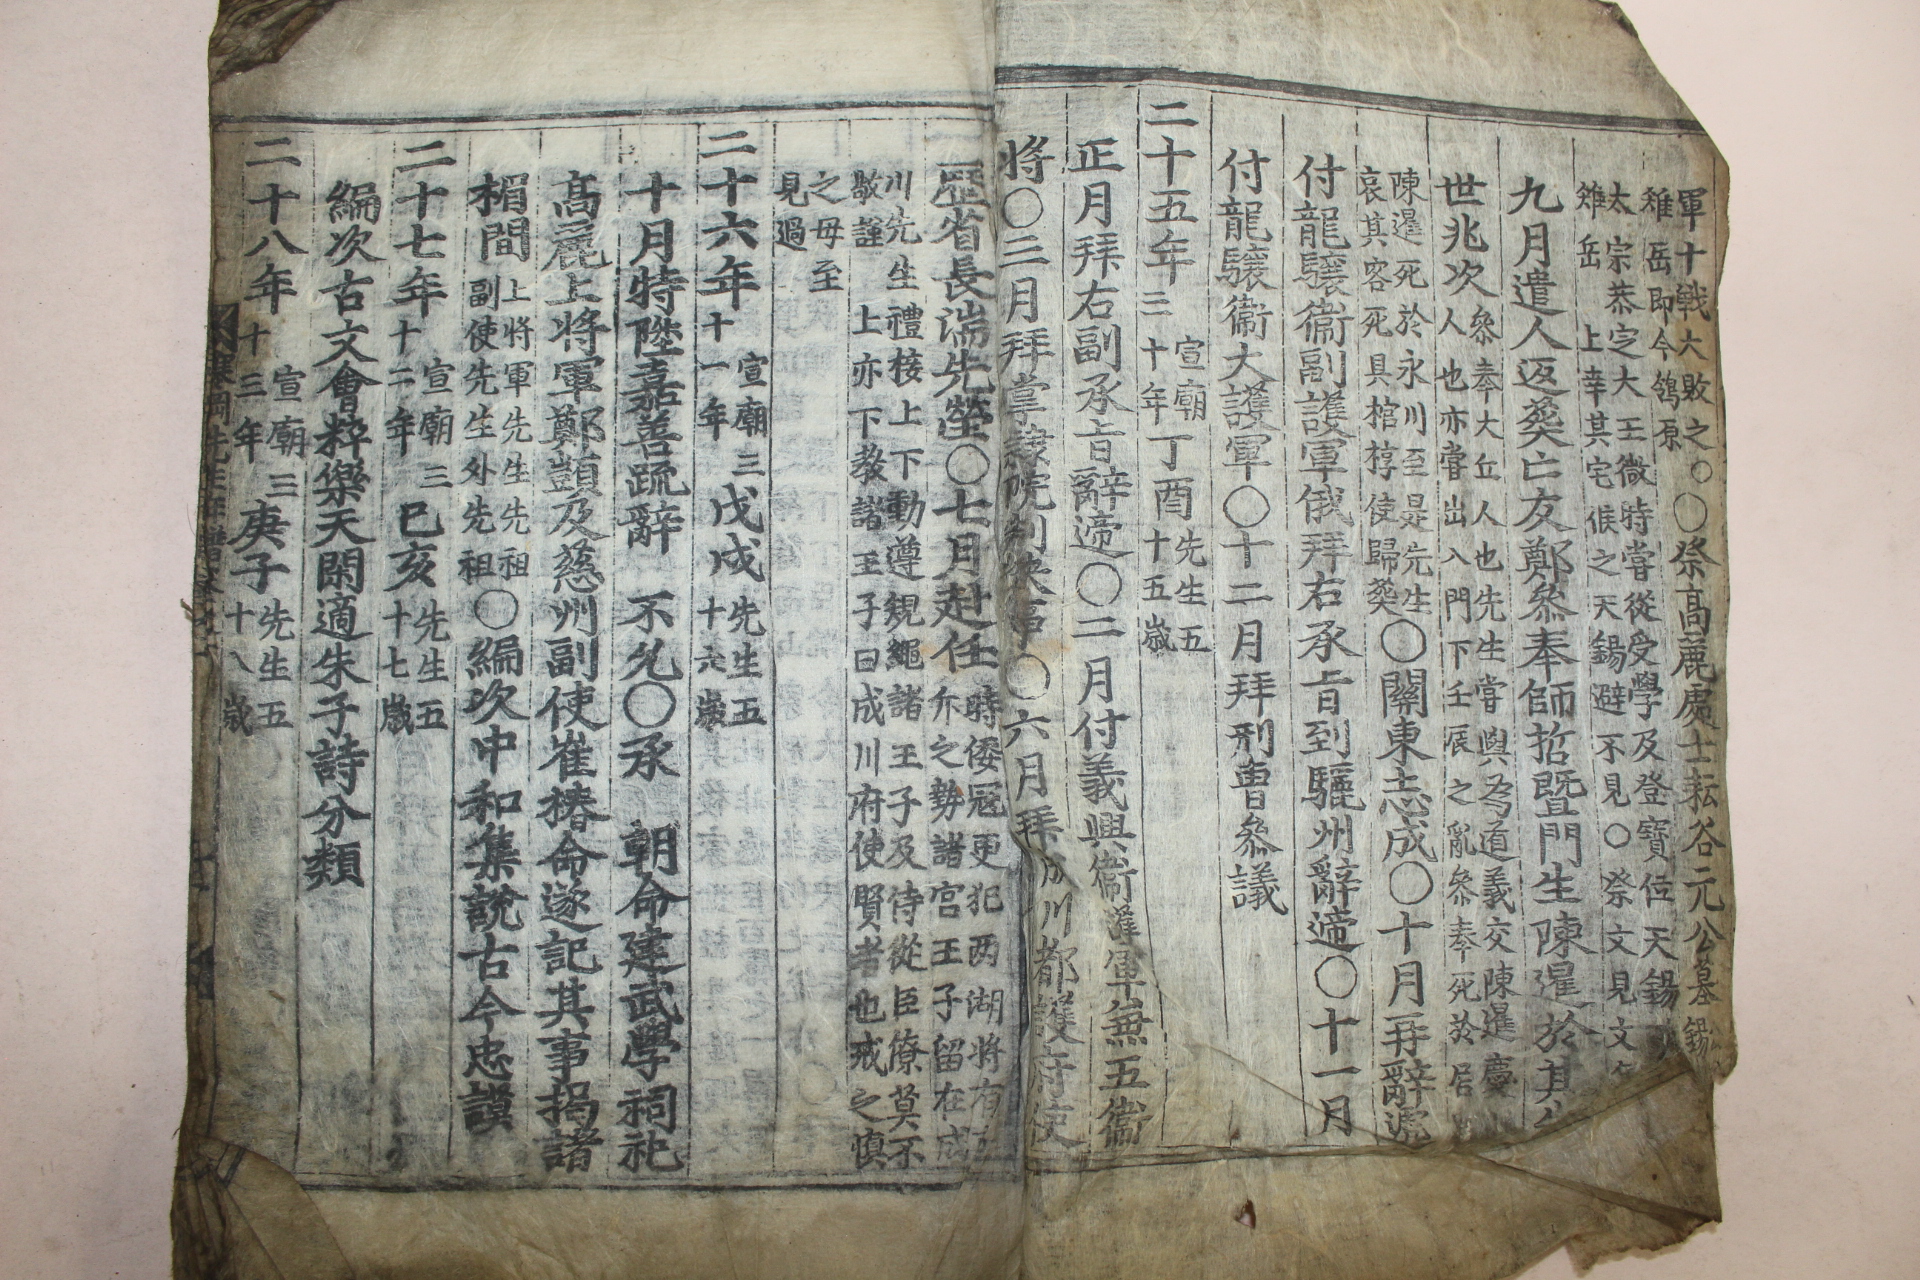 軍十戰大敗之○○祭高麗處士耘谷元公墓
雉岳即今鴒原
太宗恭定大王微時嘗從受學及登寶位天錫
雉岳 上幸其宅候之天錫避不見○祭文見文
九月遣人返葬亡友鄭叅奉師哲暨門生陳暹於其
世兆次
叅奉大丘人也先生嘗與爲道義交陳暹慶
人也亦嘗出入門下壬辰之亂叅奉死於居
陳暹死於永川至是先生
哀其客死具棺椁使歸葬
○關東志成○十月再辭遞
付龍驤衛副護軍俄拜右承旨到驪州辭遞○十一月
付龍驤衛大護軍○十二月拜刑曹叅議
二十五年
宣廟
三十年
丁酉
先生五
十五歲
正月拜右副承旨辭遞○二月付義興衛護軍兼五衛
將○三月拜掌隸院判決事○六月拜成川都護府使
歷省長湍先塋○七月赴任
時倭冦更犯两湖將有
亦之勢諸宮王子留在成
川先生禮接上下動遵䂓繩諸王子及侍從臣僚莫不
敬謹 上亦下敎諸王子曰成川府使賢者也戒之愼
之毋至
見過
二十六年
宣廟三
十一年
戊戌
先生五
十六歲
十月特陞嘉善䟽辭 不允○承 朝命建武學祠祀
高麗上將軍鄭顗及慈州副使崔椿命遂記其事揭諸
楣間
上將軍先生先祖
副使先生外先祖
○編次中和集說古今忠謨
二十七年
宣廟三
十二年
己亥
先生五
十七歲
編次古文會粹樂天閑適朱子詩分類
二十八年
宣廟三
十三年
庚子
先生五
十八歲
寒岡先生年譜卷之